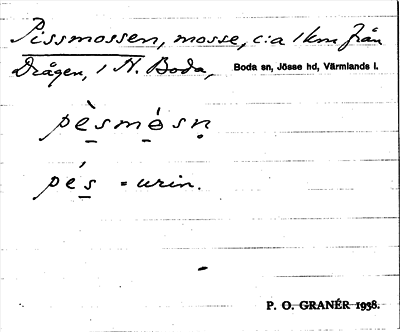 Pissmossen, mosse, c:a 1 km från
Drågen, i N. Boda, Boda sn, Jösse hd, Värmlands l.
pèsmósn
pés = urin.
P. O. GRANÉR 1938.